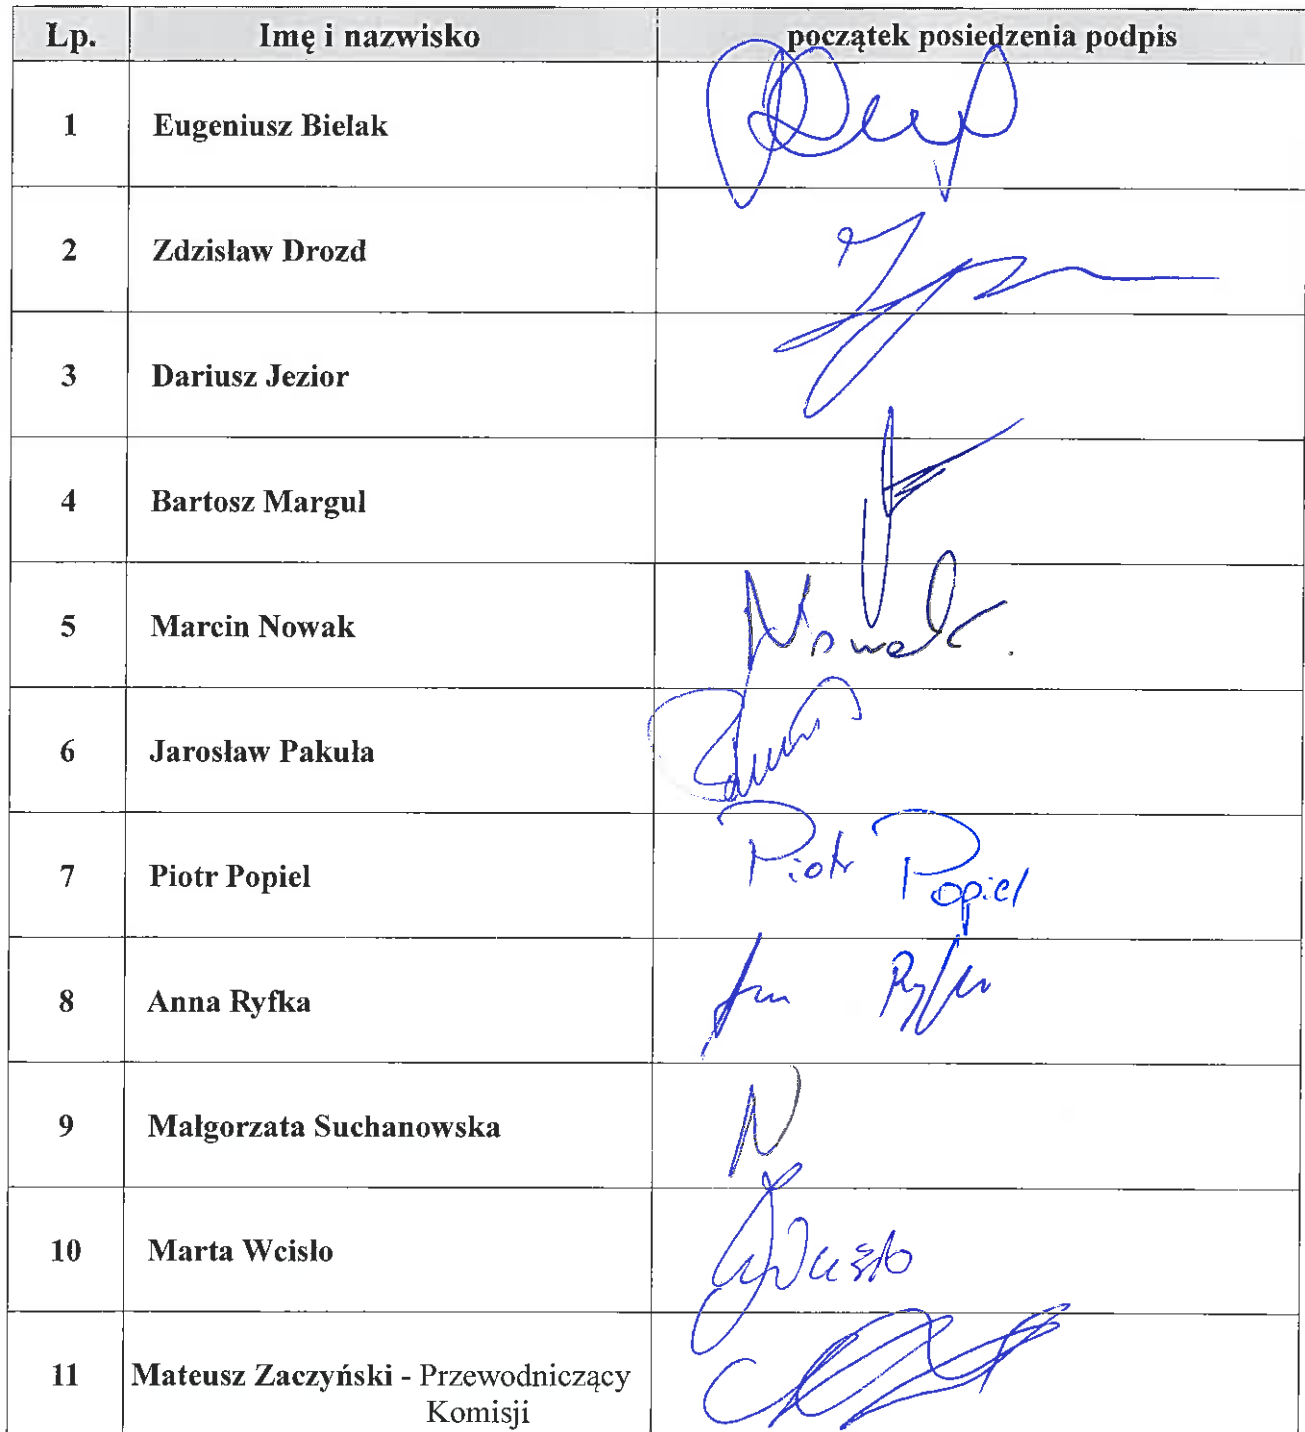 Lp. Imię i nazwisko początek posiedzenia podpis
1 Eugeniusz Bielak
2 Zdzisław Drozd
3 Dariusz Jezior
4 Bartosz Margul
5 Marcin Nowak Nowak.
6 Jarosław Pakuła
7 Piotr Popiel Piotr Popiel
8 Anna Ryfka
9 Małgorzata Suchanowska
10 Marta Wcisło
11 Mateusz Zaczyński - Przewodniczący
Komisji